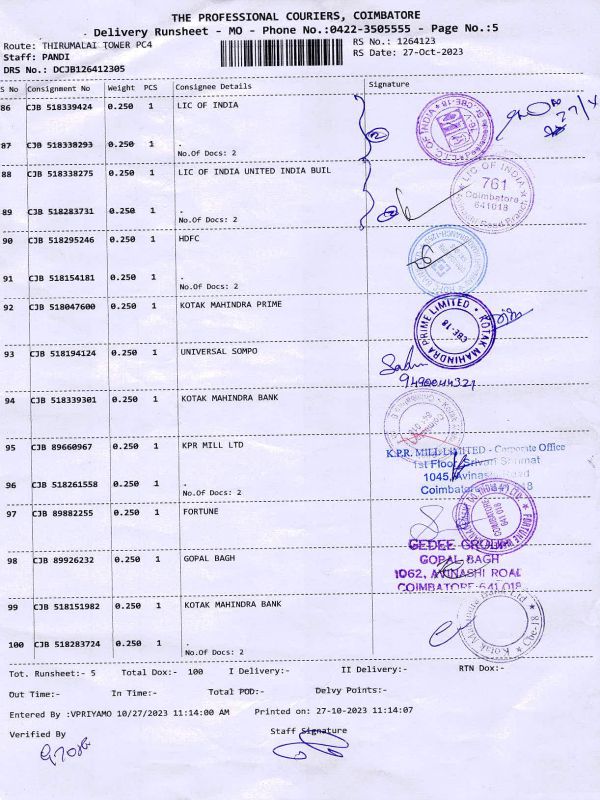 THE PROFESSIONAL COURIERS, COIMBATORE
Delivery Runsheet - MO - Phone No.:0422-3505555 - Page No.:5
Route: THIRUMALAI TOWER PC4 RS No.: 1264123
Staff: PANDI RS Date: 27-Oct-2023
DRS No.: DCJB126412305
S No Consignment No Weight PCS Consignee Details Signature
86 CJB 518339424 0.250 1 LIC OF INDIA
87 CJB 518338293 0.250 1 .
No.Of Docs: 2
88 CJB 518338275 0.250 1 LIC OF INDIA UNITED INDIA BUIL
LIC OF INDIA
761
Coimbatore
641018
89 CJB 518283731 0.250 1 .
No.Of Docs: 2
90 CJB 518295246 0.250 1 HDFC
91 CJB 518154181 0.250 1 .
No.Of Docs: 2
92 CJB 518047600 0.250 1 KOTAK MAHINDRA PRIME
KOTAK MAHINDRA PRIME LIMITED
CBE-18
93 CJB 518194124 0.250 1 UNIVERSAL SOMPO
94 CJB 518339301 0.250 1 KOTAK MAHINDRA BANK
95 CJB 89660967 0.250 1 KPR MILL LTD
K.P.R. MILL LIMITED - Corporate Office
1st Floor, Srivari Shrimat
1045, Avinashi Road
Coimbatore 641018
96 CJB 518261558 0.250 1 .
No.Of Docs: 2
97 CJB 89882255 0.250 1 FORTUNE
98 CJB 89926232 0.250 1 GOPAL BAGH
GEDEE GROUP
GOPAL BAGH
1062, AVINASHI ROAD
COIMBATORE-641 018
99 CJB 518151982 0.250 1 KOTAK MAHINDRA BANK
100 CJB 518283724 0.250 1 .
No.Of Docs: 2
Tot. Runsheet:- 5 Total Dox:- 100 I Delivery:- II Delivery:- RTN Dox:-
Out Time:- In Time:- Total POD:- Delvy Points:-
Entered By :VPRIYAMO 10/27/2023 11:14:00 AM Printed on: 27-10-2023 11:14:07
Verified By Staff Signature